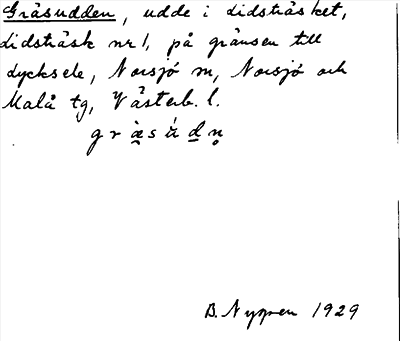 Gräsudden, udde i Lidsträsket,
Lidsträsk nr 1, på gränsen till
Lycksele, Norsjö sn, Norsjö och
Malå tg, Västerb. l.
B. Nygren 1929